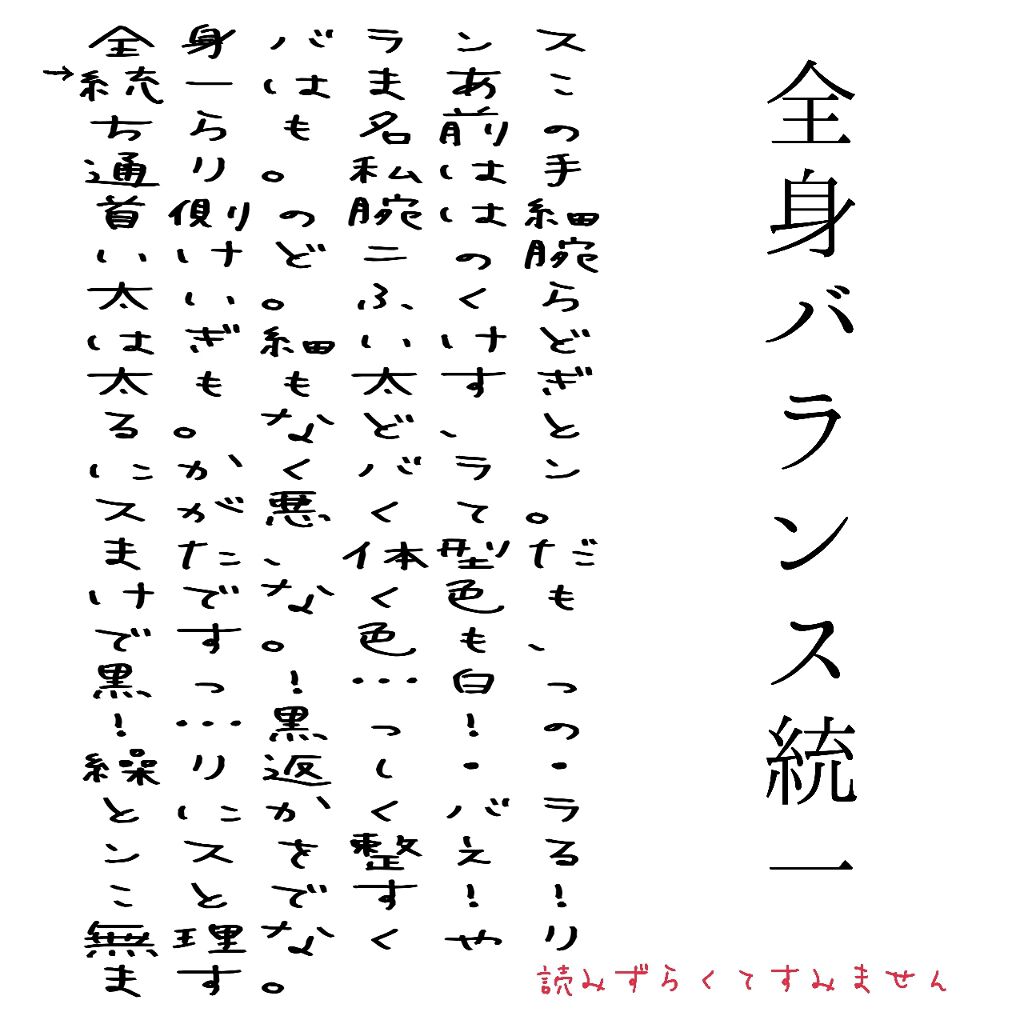 全身バランス統一
全身バランス
→統一はまあこ
ちらも名前の
通り。私は手
首側の腕は細
いけど二の腕
太い。ふくら
はぎ細いけど
太ももも太すぎ
る。など、と
にかくバラン
スが悪くて。
また、体型だ
けでなく色も
です。色も、
黒っ!…白っ
!…黒っ!の
繰り返し・・
とにかくバラ
ンスを整える
ことです!!
無理なくやり
ます。
読みずらくてすみません